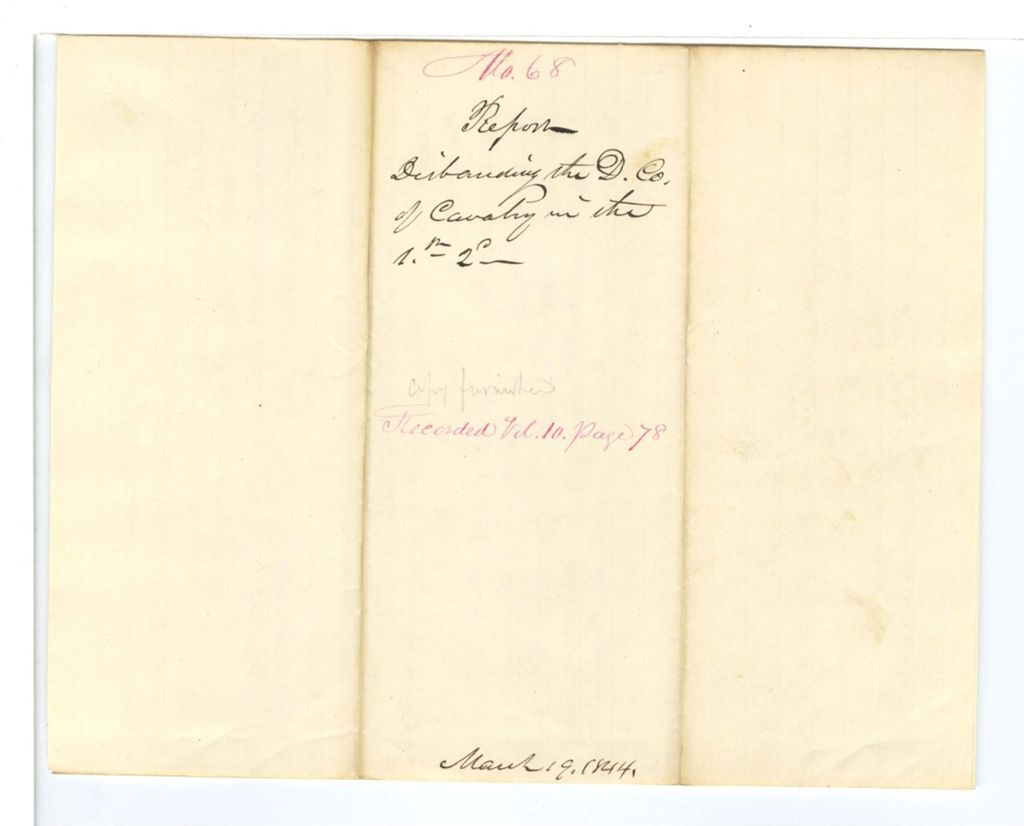 No. 68
Report
Disbanding the D. Co.
of Cavalry in the
1.st 2d
Copy furnished
Recorded Vol. 10. Page 78
March 19. 1844.